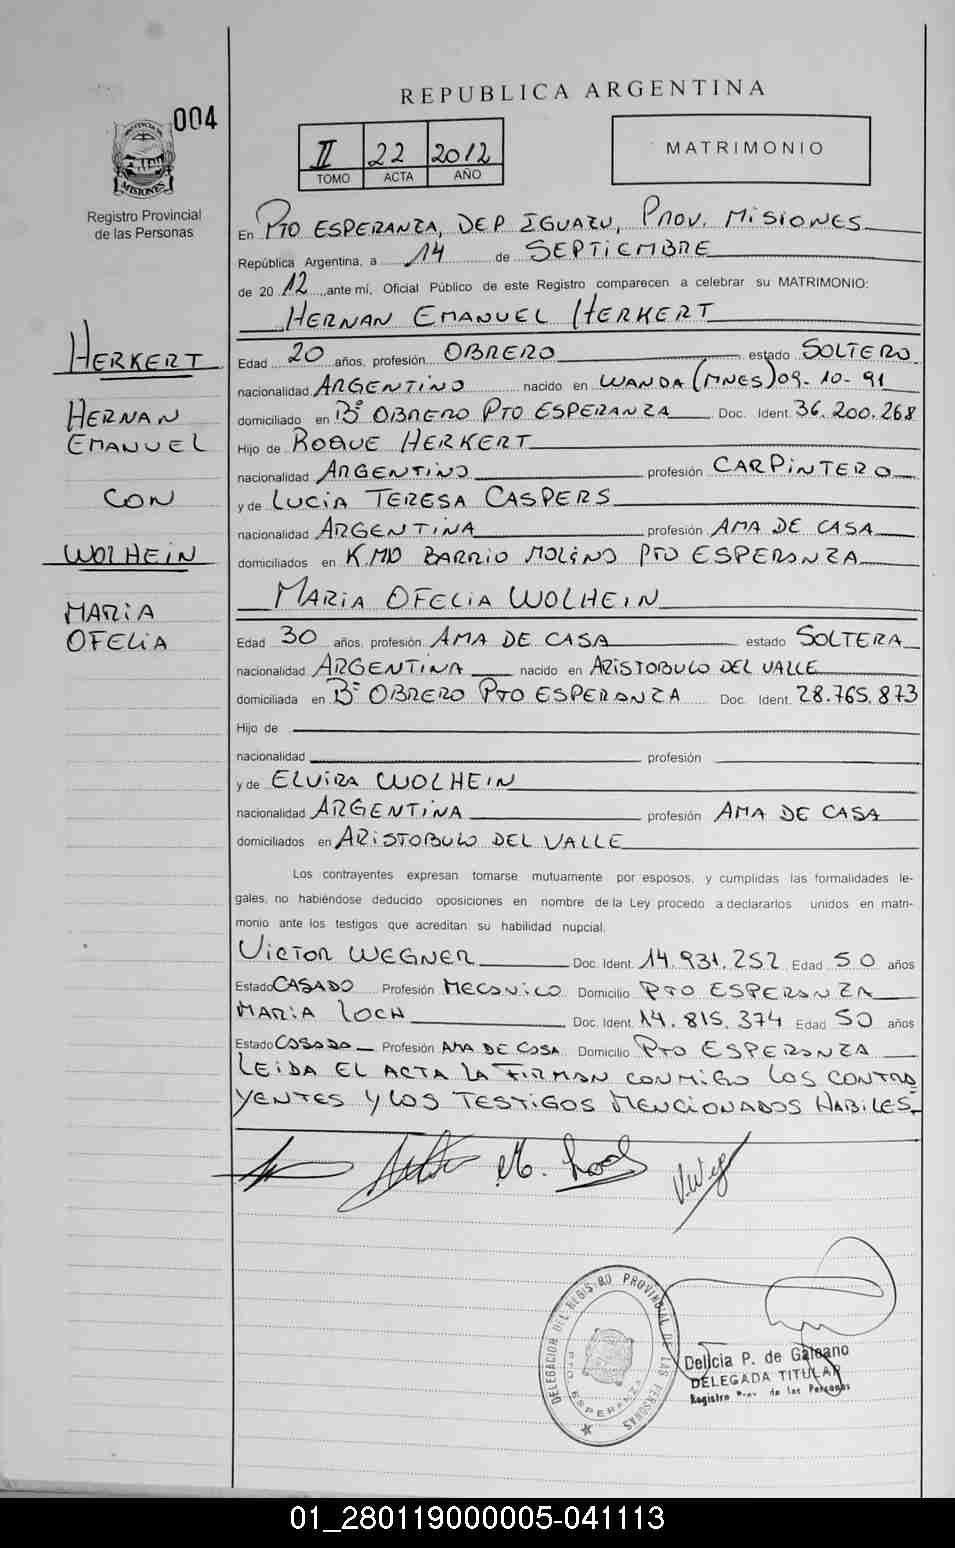 REPUBLICA ARGENTINA
004
PROVINCIA DE MISIONES
II 22 2012
TOMO ACTA AÑO
MATRIMONIO
Registro Provincial
de las Personas
En PTO ESPERANZA, DEP IGUAZU, PROV. MISIONES
República Argentina, a 14 de SEPTIEMBRE
de 2012, ante mí, Oficial Público de este Registro comparecen a celebrar su MATRIMONIO:
HERNAN EMANUEL HERKERT
HERKERT
HERNAN
EMANUEL
CON
WOLHEIN
MARIA
OFELIA
Edad 20 años, profesión OBRERO estado SOLTERO
nacionalidad ARGENTINO nacido en WANDA (MNES) 09-10-91
domiciliado en Bº OBRERO PTO ESPERANZA Doc. Ident. 36.200.268
Hijo de ROQUE HERKERT
nacionalidad ARGENTINO profesión CARPINTERO
y de LUCIA TERESA CASPERS
nacionalidad ARGENTINA profesión AMA DE CASA
domiciliados en K.M10 BARRIO MOLINO PTO ESPERANZA
MARIA OFELIA WOLHEIN
Edad 30 años, profesión AMA DE CASA estado SOLTERA
nacionalidad ARGENTINA nacido en ARISTOBULO DEL VALLE
domiciliada en Bº OBRERO PTO ESPERANZA Doc. Ident. 28.765.873
Hijo de
nacionalidad profesión
y de ELVIRA WOLHEIN
nacionalidad ARGENTINA profesión AMA DE CASA
domiciliados en ARISTOBULO DEL VALLE
Los contrayentes expresan tomarse mutuamente por esposos, y cumplidas las formalidades le-
gales, no habiéndose deducido oposiciones en nombre de la Ley procedo a declararlos unidos en matri-
monio ante los testigos que acreditan su habilidad nupcial.
VICTOR WEGNER Doc. Ident. 14.931.252 Edad 50 años
Estado CASADO Profesión MECANICO Domicilio PTO ESPERANZA
MARIA LOCH Doc. Ident. 14.815.374 Edad 50 años
Estado CASADA Profesión AMA DE CASA Domicilio PTO ESPERANZA
LEIDA EL ACTA LA FIRMAN CONMIGO LOS CONTRA
YENTES Y LOS TESTIGOS MENCIONADOS HABILES.
M. Loch
DELEGACION DEL REGISTRO PROVINCIAL DE LAS PERSONAS
PTO ESPERANZA
Delicia P. de Galeano
DELEGADA TITULAR
Registro Prov. de las Personas
01_280119000005-041113